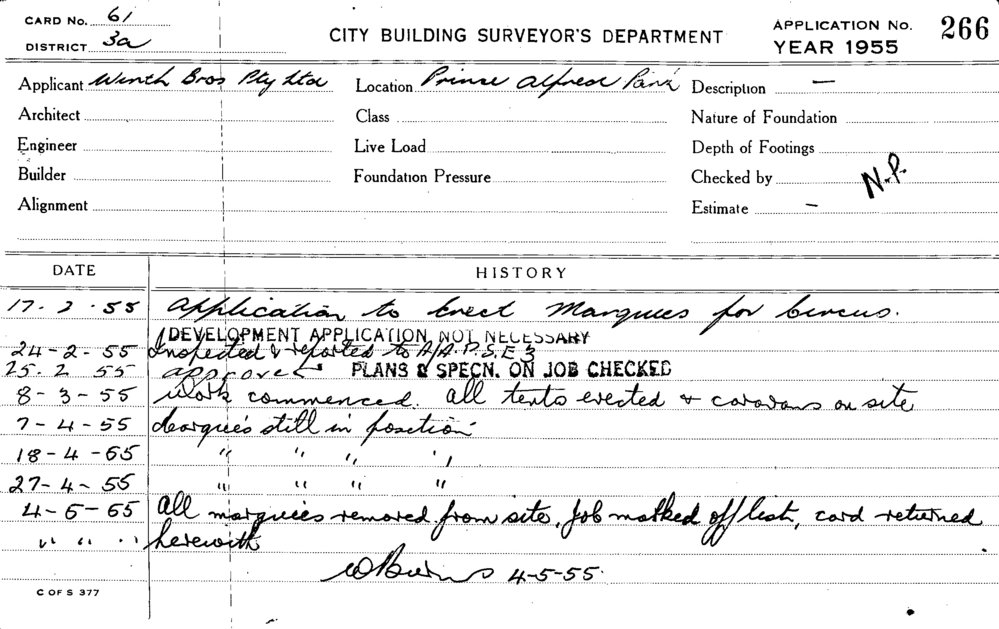 CARD No. 61
DISTRICT 3a
CITY BUILDING SURVEYOR'S DEPARTMENT
APPLICATION No. 266
YEAR 1955
Applicant Wirth Bros Pty Ltd
Location Prince Alfred Park
Description —
Architect
Class
Nature of Foundation
Engineer
Live Load
Depth of Footings
Builder
Foundation Pressure
Checked by N.P.
Alignment
Estimate —
DATE HISTORY
17-2-55 Application to Erect Marquees for Circus.
DEVELOPMENT APPLICATION NOT NECESSARY
24-2-55 Inspected & reported to A/A.P.S.E 3
25.2 55 approved PLANS & SPECN. ON JOB CHECKED
8-3-55 Work commenced. All tents erected & caravans on site
7-4-55 Marquies still in position
18-4-55 " " " "
27-4-55 " " " "
4-5-55 All marquies removed from site, Job marked off list, card returned
" " " herewith
4-5-55.
C OF S 377